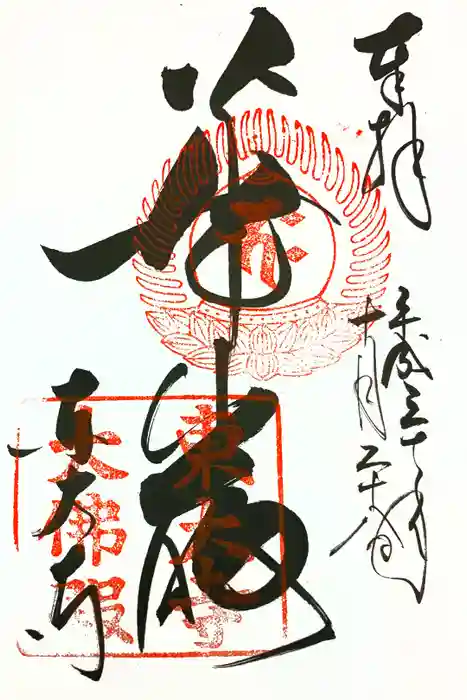 奉拝
平成三十年
十月二十
華厳
東大寺
東大寺
大佛殿